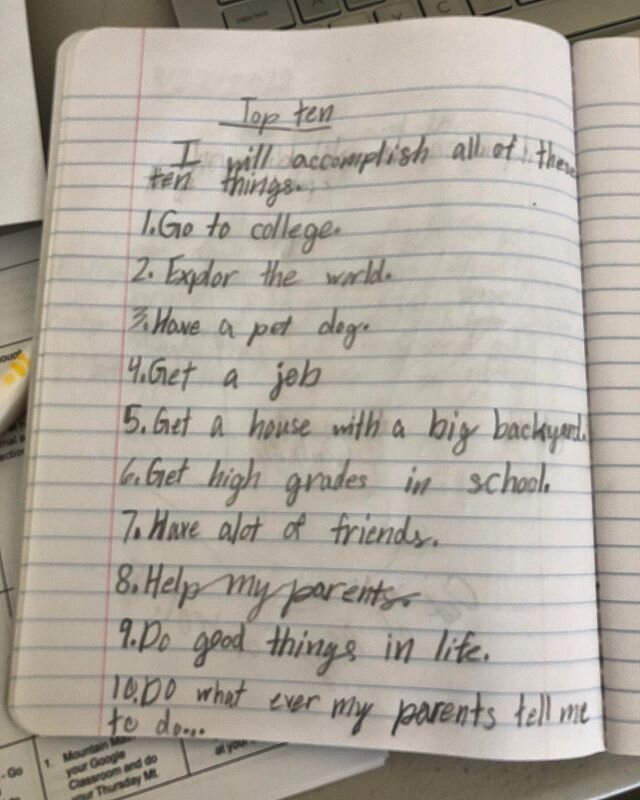 Top ten
I will accomplish all of these
ten things.
1. Go to college.
2. Explor the world.
3. Have a pet dog.
4. Get a job
5. Get a house with a big backyard.
6. Get high grades in school.
7. Have alot of friends.
8. Help my parents.
9. Do good things in life.
10. DO what ever my parents tell me
to do...
- Go
1. Mountain Math
your Google
Classroom and do
your Thursday Mt.
at your